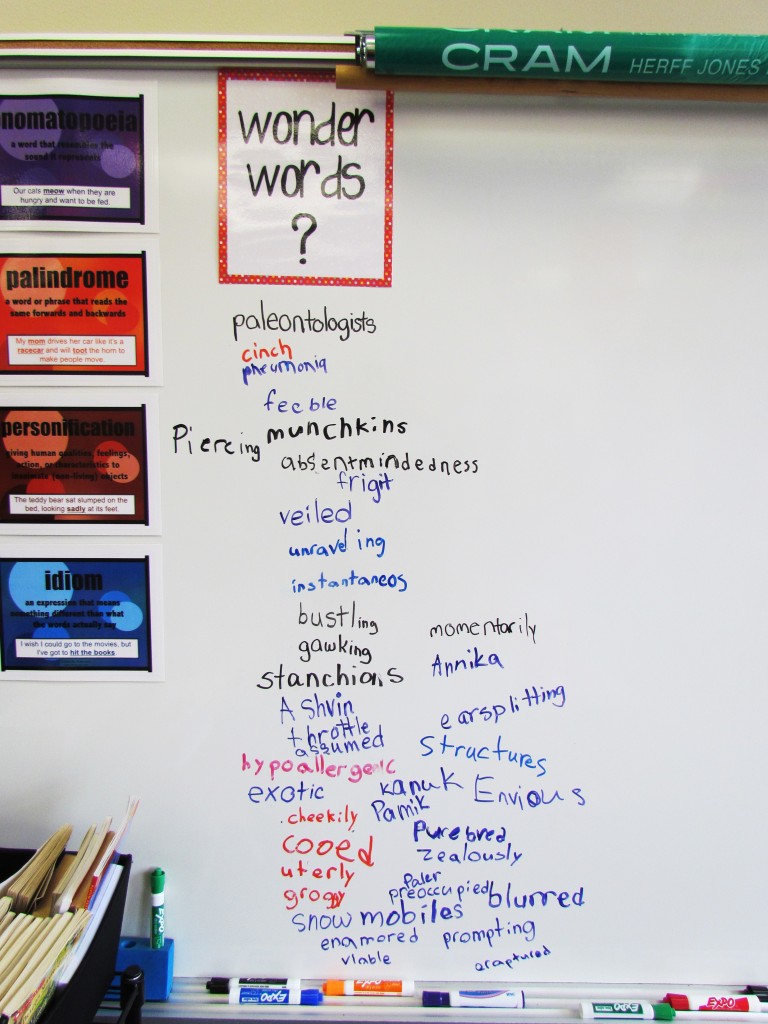 CRAM HERFF JONES
nomatopoeia
a word that resembles the
sound it represents
Our cats meow when they are
hungry and want to be fed.
palindrome
a word or phrase that reads the
same forwards and backwards
My mom drives her car like it's a
racecar and will toot the horn to
make people move.
personification
giving human qualities, feelings,
action, or characteristics to
inanimate (non-living) objects
The teddy bear sat slumped on the
bed, looking sadly at its feet.
idiom
an expression that means
something different than what
the words actually say
I wish I could go to the movies, but
I've got to hit the books.
wonder
words
?
paleontologists
cinch
pheumonia
feeble
Piercing munchkins
absentmindedness
frigit
veiled
unraveling
instantaneos
bustling
gawking
stanchions
Ashvin
throttle
assumed
hypoallergenic
exotic
cheekily
cooed
uterly
grogy
snowmobiles
enamored
viable
momentarily
Annika
earsplitting
structures
kanuk Envious
Pamik
Purebred
zealously
paler
preoccupied blurred
prompting
EXPO
EXPO
EXPO
EXPO